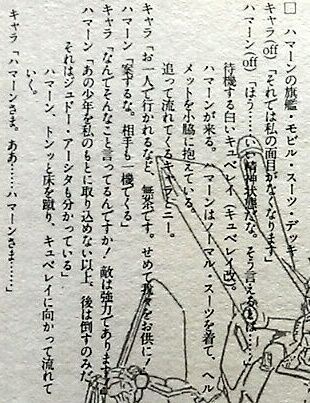 □ ハマーンの旗艦・モビル・スーツ・デッキ
キャラ off「それでは私の面目がなくなります」
ハマーン off「ほう……いい精神状態だな。そう言えるのは……」
待機する白いキュベレイ（キュベレイ改）。
ハマーンが来る。ハマーンはノーマル・スーツを着て、ヘル
メットを小脇に抱えている。
追って流れてくるキャラ・ニー。
キャラ「お一人で行かれるなど、無茶です。せめて我々をお供に！」
ハマーン「案ずるな。相手も一機でくる」
キャラ「なんてそんなこと言ってるんですか！ 敵は強力であります」
ハマーン「あの少年を私のもとに取り込めない以上、後は倒すのみだ。
それはジュドー・アーシタも分かっている」
ハマーン、トンッと床を蹴り、キュベレイに向かって流れて
いく。
キャラ「ハマーンさま。ああ……ハマーンさま……」